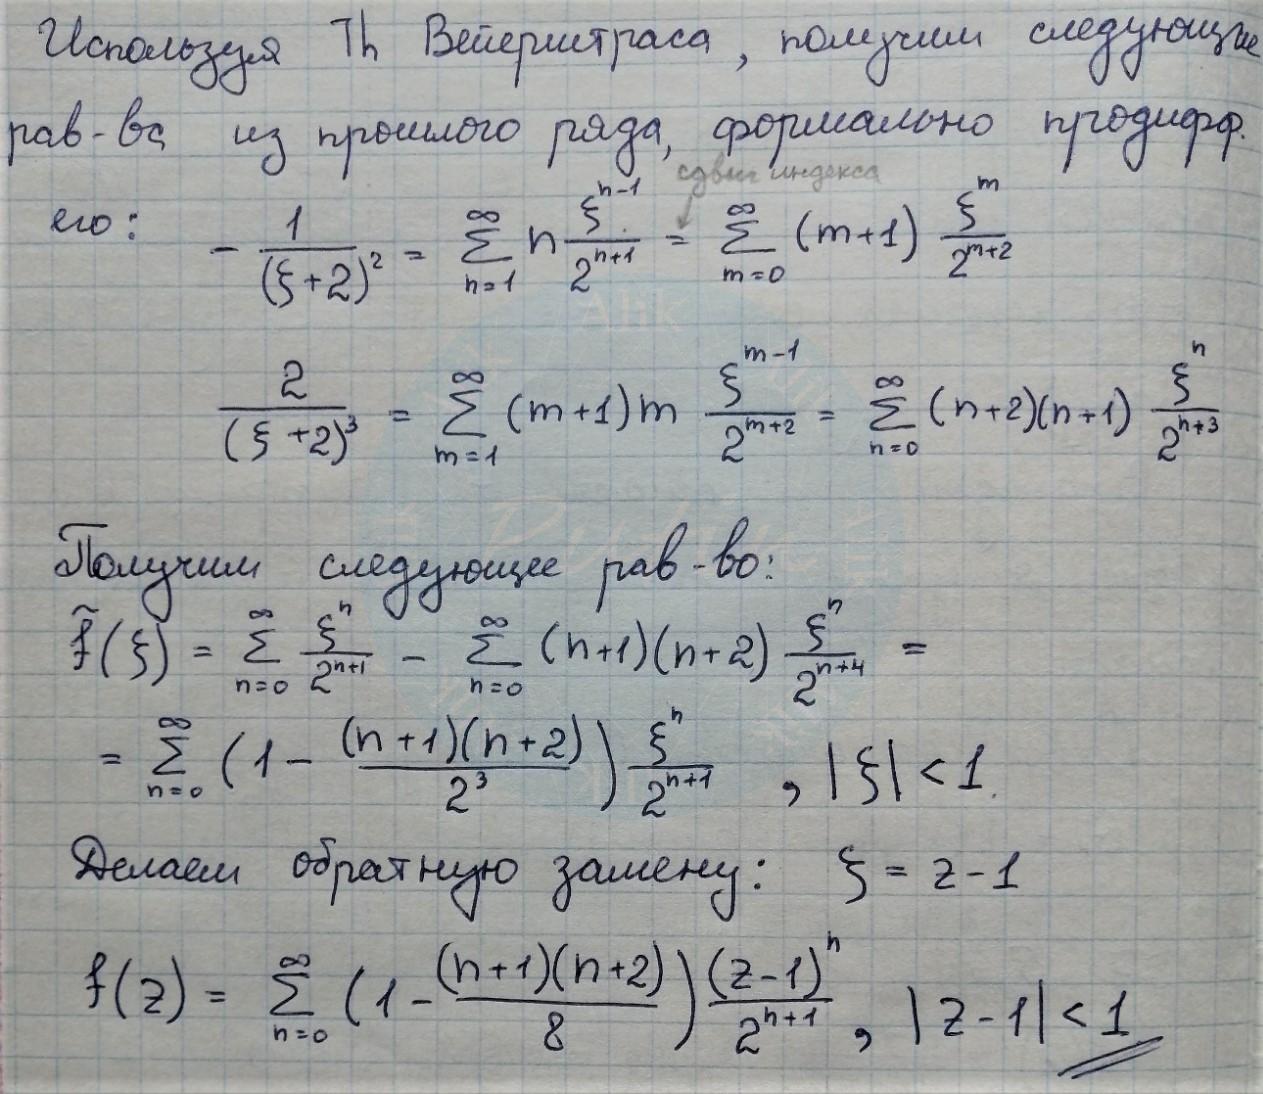 Используя Th Вейерштраса, получим следующие
рав-ва из прошлого ряда, формально продифф.
сдвиг индекса
его: - 1/(ξ+2)^2 = ∑_{n=1}^{∞} n ξ^{n-1}/2^{n+1} = ∑_{m=0}^{∞} (m+1) ξ^m/2^{m+2}
2/(ξ+2)^3 = ∑_{m=1}^{∞} (m+1)m ξ^{m-1}/2^{m+2} = ∑_{n=0}^{∞} (n+2)(n+1) ξ^n/2^{n+3}
Получим следующее рав-во:
f̃(ξ) = ∑_{n=0}^{∞} ξ^n/2^{n+1} - ∑_{n=0}^{∞} (n+1)(n+2) ξ^n/2^{n+4} =
= ∑_{n=0}^{∞} (1 - (n+1)(n+2)/2^3) ξ^n/2^{n+1} , |ξ| < 1.
Делаем обратную замену: ξ = z-1
f(z) = ∑_{n=0}^{∞} (1 - (n+1)(n+2)/8) (z-1)^n/2^{n+1} , |z-1| < 1